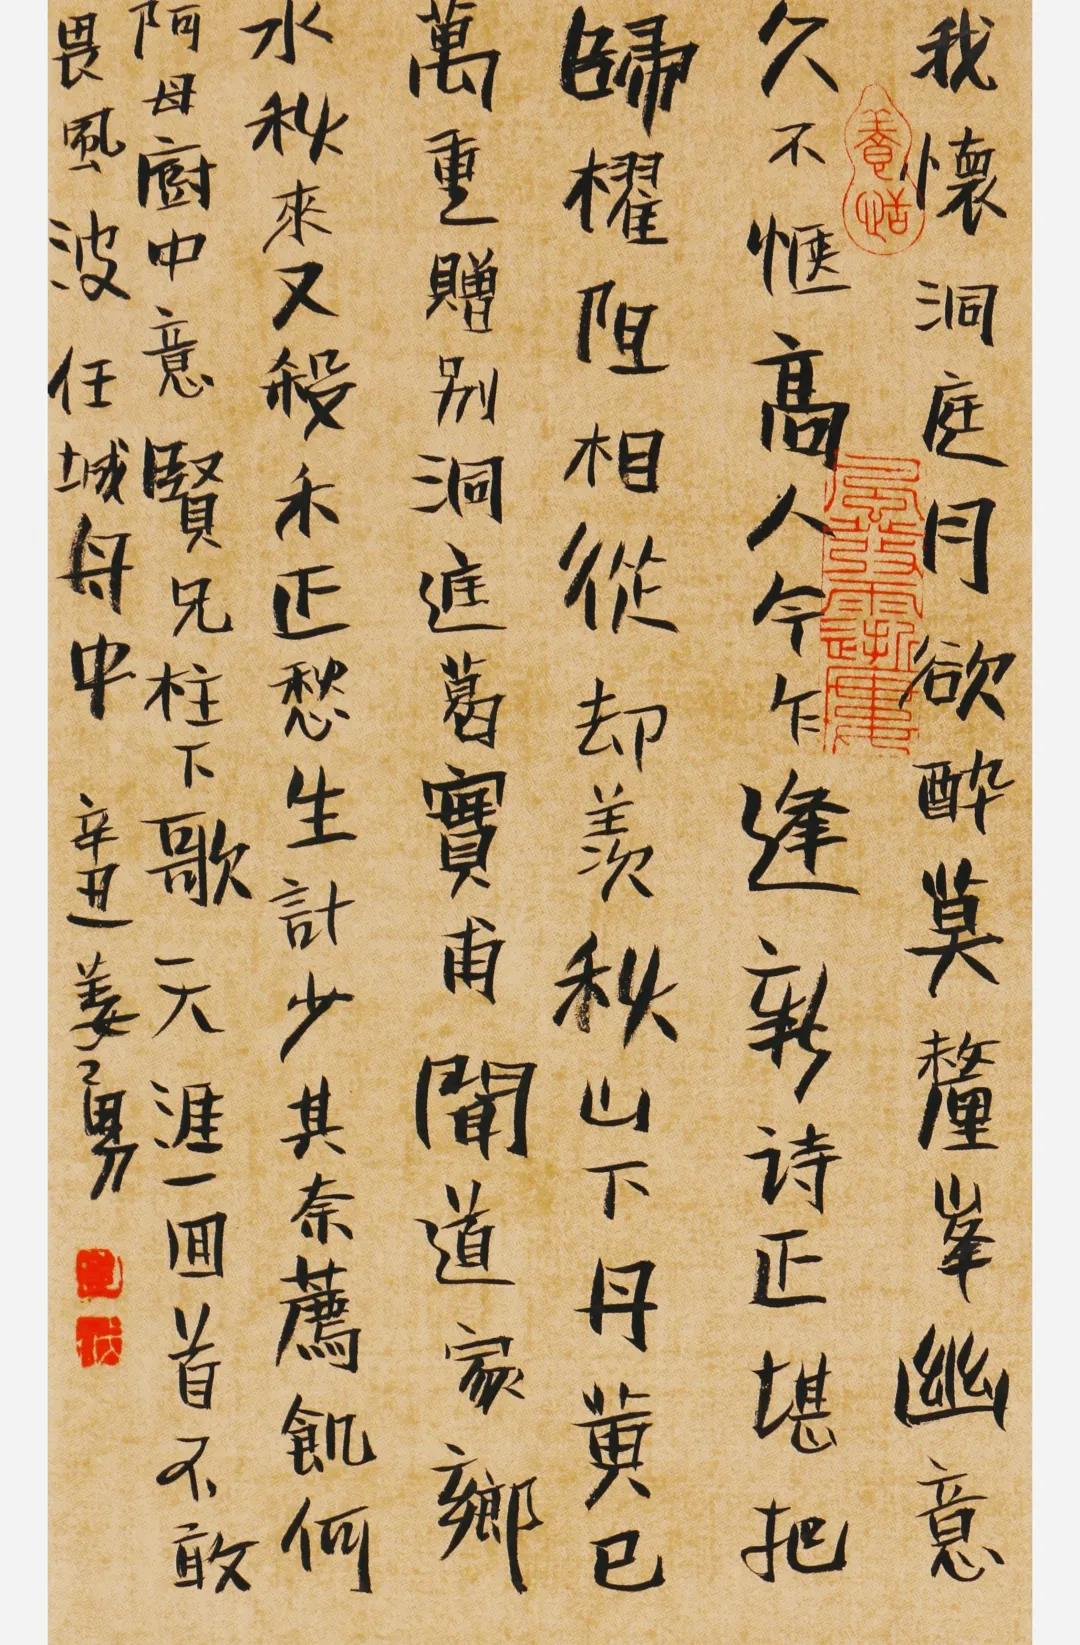 我懷洞庭月欲酔莫釐峯幽意
久不愜高人今乍逢新诗正堪把
歸櫂阻相從却羨秋山下丹黄已
萬重贈别洞庭葛實甫聞道家鄉
水秋來又殺禾正愁生計少其奈薦飢何
阿母廚中意賢兄柱下歌天涯一回首不敢
畏風波任城舟中 辛丑姜勇
養恬